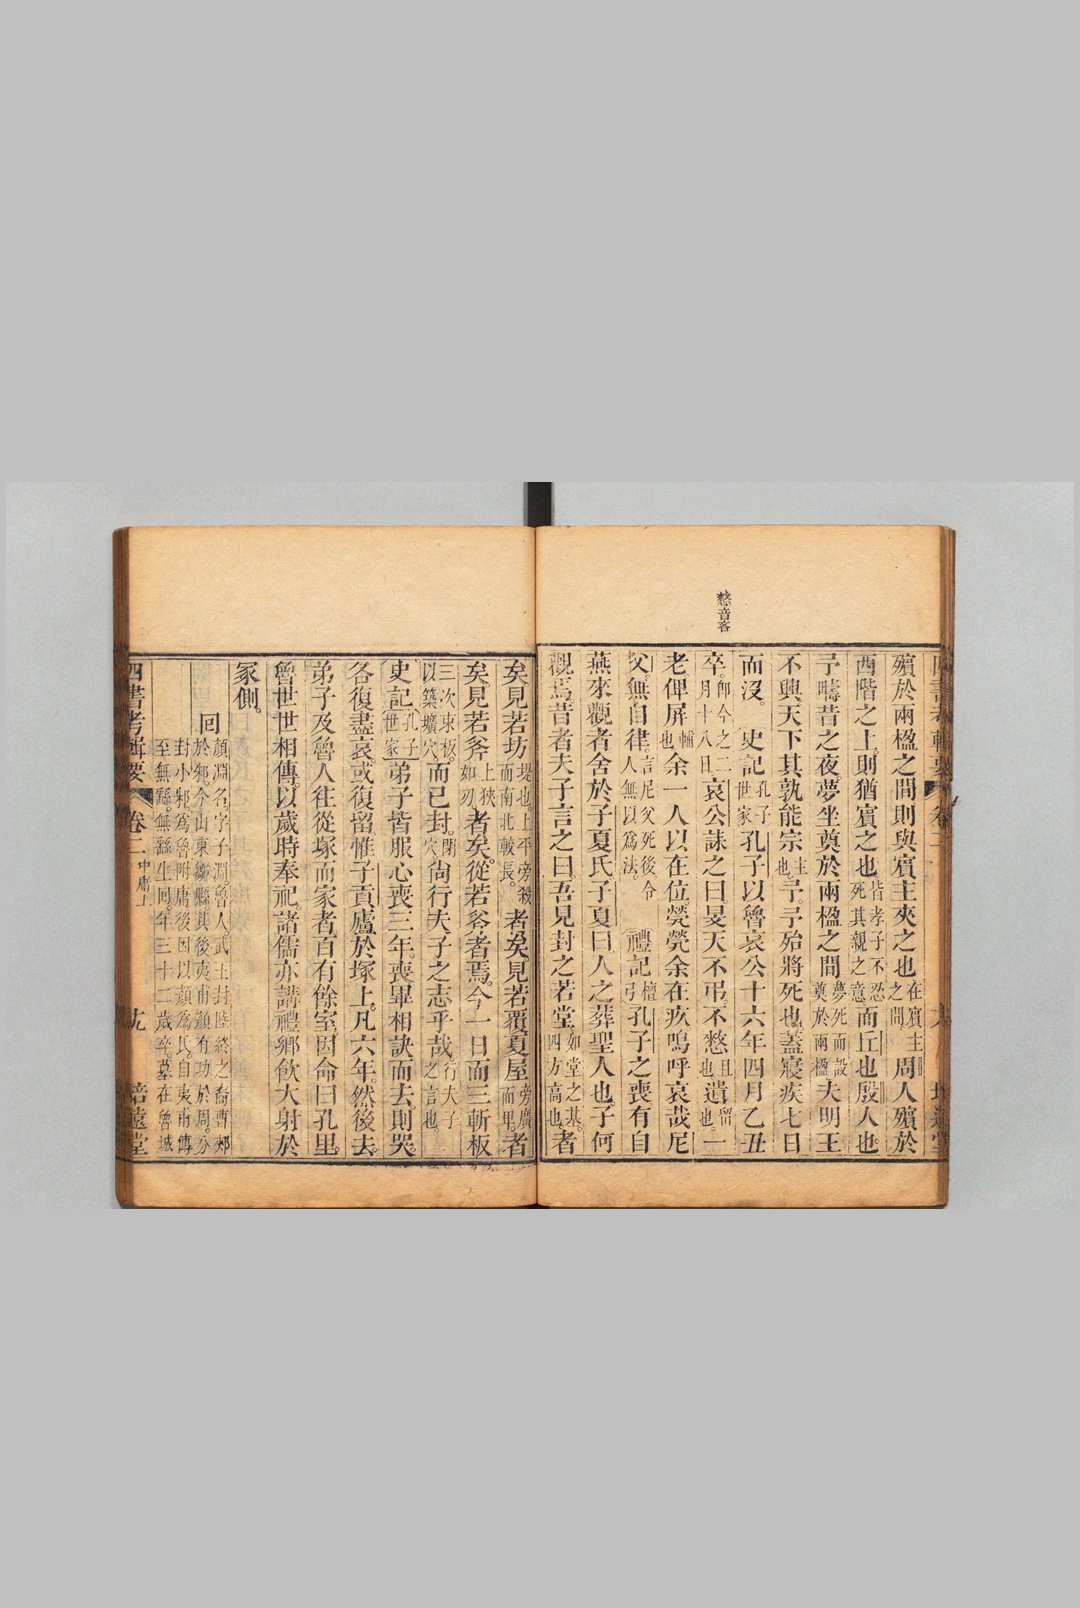 憖音吝
殯於兩楹之間則與賓主夾之也在賓主之間周人殯於
西階之上則猶賓之也皆孝子不忍死其親之意而丘也殷人也
予疇昔之夜夢坐奠於兩楹之間夢死而設奠於兩楹夫明王
不興天下其孰能宗主也予予殆將死也蓋寢疾七日
而沒。史記孔子世家孔子以魯哀公十六年四月乙丑
卒。即今之二月十八日哀公誄之曰旻天不弔不憖且也遺留也一
老俾屏輔也余一人以在位煢煢余在疚嗚呼哀哉尼
父無自律言尼父死後令人無以爲法。禮記檀弓孔子之喪有自
燕來觀者舍於子夏氏子夏曰人之葬聖人也子何
觀焉昔者夫子言之曰吾見封之若堂如堂之基。四方高也者
矣見若坊堤也上平旁殺而南北較長。者矣見若覆夏屋旁廣而卑者
矣見若斧上狹如刃者矣。從若斧者焉。今一日而三斬板
三次束板。以築壙穴。而已封。閉穴尙行夫子之志乎哉行夫子之言也。
史記孔子世家弟子皆服心喪三年。喪畢相訣而去則哭。
各復盡哀或復留惟子貢廬於塚上。凡六年。然後去。
弟子及魯人往從塚而家者百有餘室因命曰孔里。
魯世世相傳。以歲時奉祀。諸儒亦講禮鄕飮大射於
冢側。
回
顏淵名。字子淵。魯人。武王封陸終之裔曹郟
於邾。今山東鄒縣其後夷甫顏有功於周。分
封小邾。爲魯附庸後因以顏爲氏。自夷甫傳
至無繇。無繇生回。年三十二歲卒。墓在魯城
四書考輯要 卷二 中庸上 十九 培遠堂